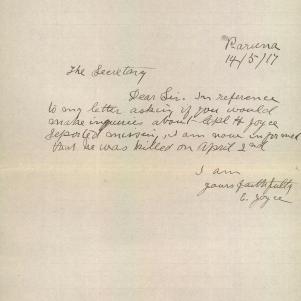 Paruna
14/5/17
The Secretary
Dear Sir. In reference
to my letter asking if you would
make inquiries about Cpl H Joyce
reported missin, I am now informed
that he was killed on April 2nd
I am
yours faithfully
C. Joyce